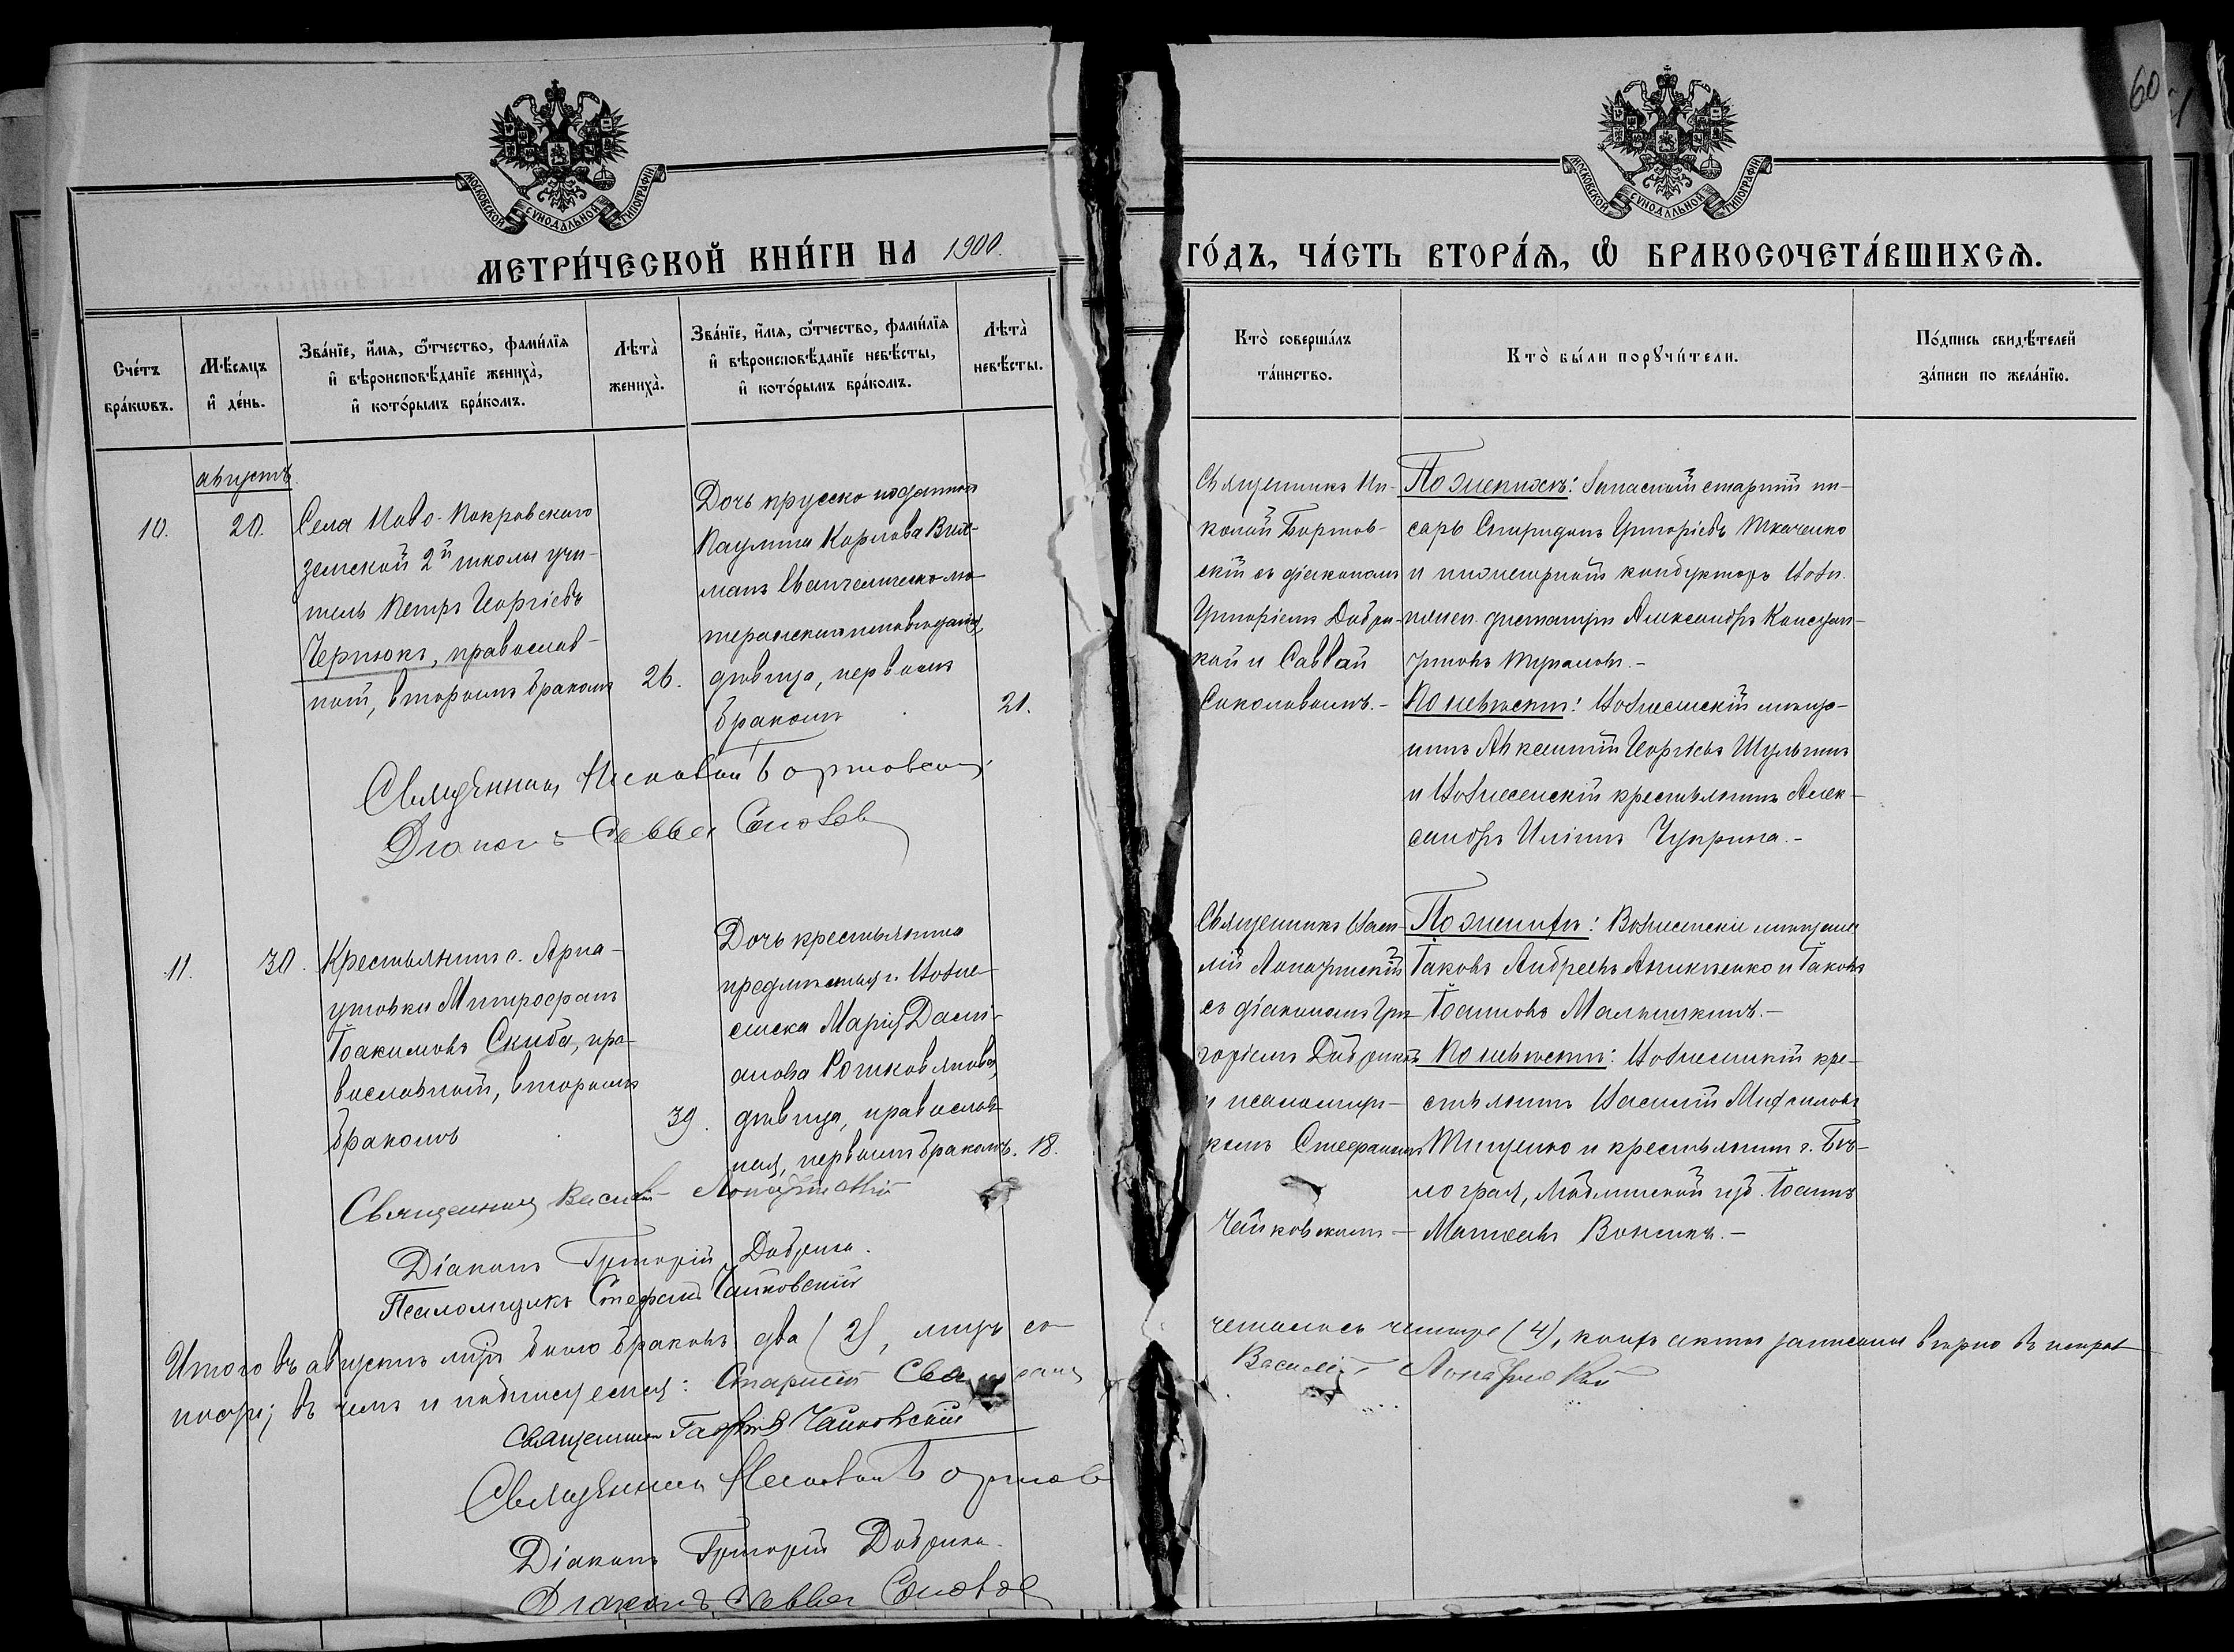 60
МОСКОВСКОЙ СУНОДАЛЬНОЙ ТИПОГРАФІИ
МОСКОВСКОЙ СУНОДАЛЬНОЙ ТИПОГРАФІИ
МЕТРИ́ЧЕСКОЙ КНИ́ГИ НА 1900.
ГО́ДЪ, ЧА́СТЬ ВТОРА́Я, Ѡ БРАКОСОЧЕТА́ВШИХСЯ.
Сче́тъ
бра́кѡвъ.
Мѣ́сяцъ
и де́нь.
Зва́нїе, и́мя, ѻ́тчество, фами́лїя
и вѣроисповѣ́данїе жениха̀,
и кото́рымъ бра́комъ.
Лѣта̀
жениха̀.
Зва́нїе, и́мя, ѻ́тчество, фами́лїя
и вѣроисповѣ́данїе невѣ́сты,
и кото́рымъ бра́комъ.
Лѣта̀
невѣ́сты.
Кто̀ соверша́лъ
та́инство.
Кто̀ бы́ли порꙋчи́тели.
По́дпись свидѣ́телей
за́писи по жела́нїю.
августъ.
10.
20.
Села Ново-Покровскаго
земской 2й школы учи-
тель Петръ Георгіевъ
Чернюкъ, православ-
ный, вторымъ бракомъ
26.
Дочь прусско-подданнаго
Паулина Карлова
Евангелическо-лю-
теранскаго исповѣданія,
дѣвица, первымъ
бракомъ
21.
Священникъ Ни-
колай Бортов-
скій съ діаконами
Григоріемъ Добри-
кой и Саввой
Соколовымъ.-
По женихѣ: Запасный старшій пи-
сарь Спиридонъ Григоріевъ Ткаченко
и инженерный кондукторъ
дистанціи Александръ Констан-
тиновъ.-
По невѣстѣ: Вознесенскій мѣща-
нинъ Аркадій Георгіевъ Шульгинъ
и Вознесенскій крестьянинъ Алек-
сандръ Ильинъ Чуприна.-
Священникъ Николай Бортовскій
Діаконъ Савва Соколов
11.
30.
Крестьянинъ с. Арна-
утовки Митрофанъ
Іоакимовъ Скиба, пра-
вославный, вторымъ
бракомъ
39.
Дочь крестьянина
предмѣстья г. Возне-
сенска Марія Даміа-
нова,
дѣвица, православ-
ная, первымъ бракомъ.
18.
Священникъ Васи-
лій Лопатинскій
съ діакономъ Гри-
горіемъ Добрикой
и псаломщи-
комъ Стефаномъ
Чайковскимъ -
По женихѣ: Вознесенскіе мѣщане
Іаковъ Андреевъ Аникіенко и Іаковъ
Іоанновъ Малышкинъ.-
По невѣстѣ: Вознесенскій кре-
стьянинъ Василій
Тищенко и крестьянинъ г. Бѣ-
лограя, Люблинской губ. Іоаннъ
Матѳеевъ.-
Священникъ Василій Лопатинскій
Діаконъ Григорій Добрика.
Псаломщикъ Стефанъ Чайковскій
Итого въ августѣ мцѣ было браковъ два (2), лицъ со-
четалось четыре (4), коихъ акты записаны вѣрно и исправ-
но; въ чемъ и подписуемся: Старшій Священникъ
Василій Лопатинскій
Священникъ Гавріилъ Чайковскій
Священникъ Николай Бортов
Діаконъ Григорій Добрика.
Діаконъ Савва Соколов